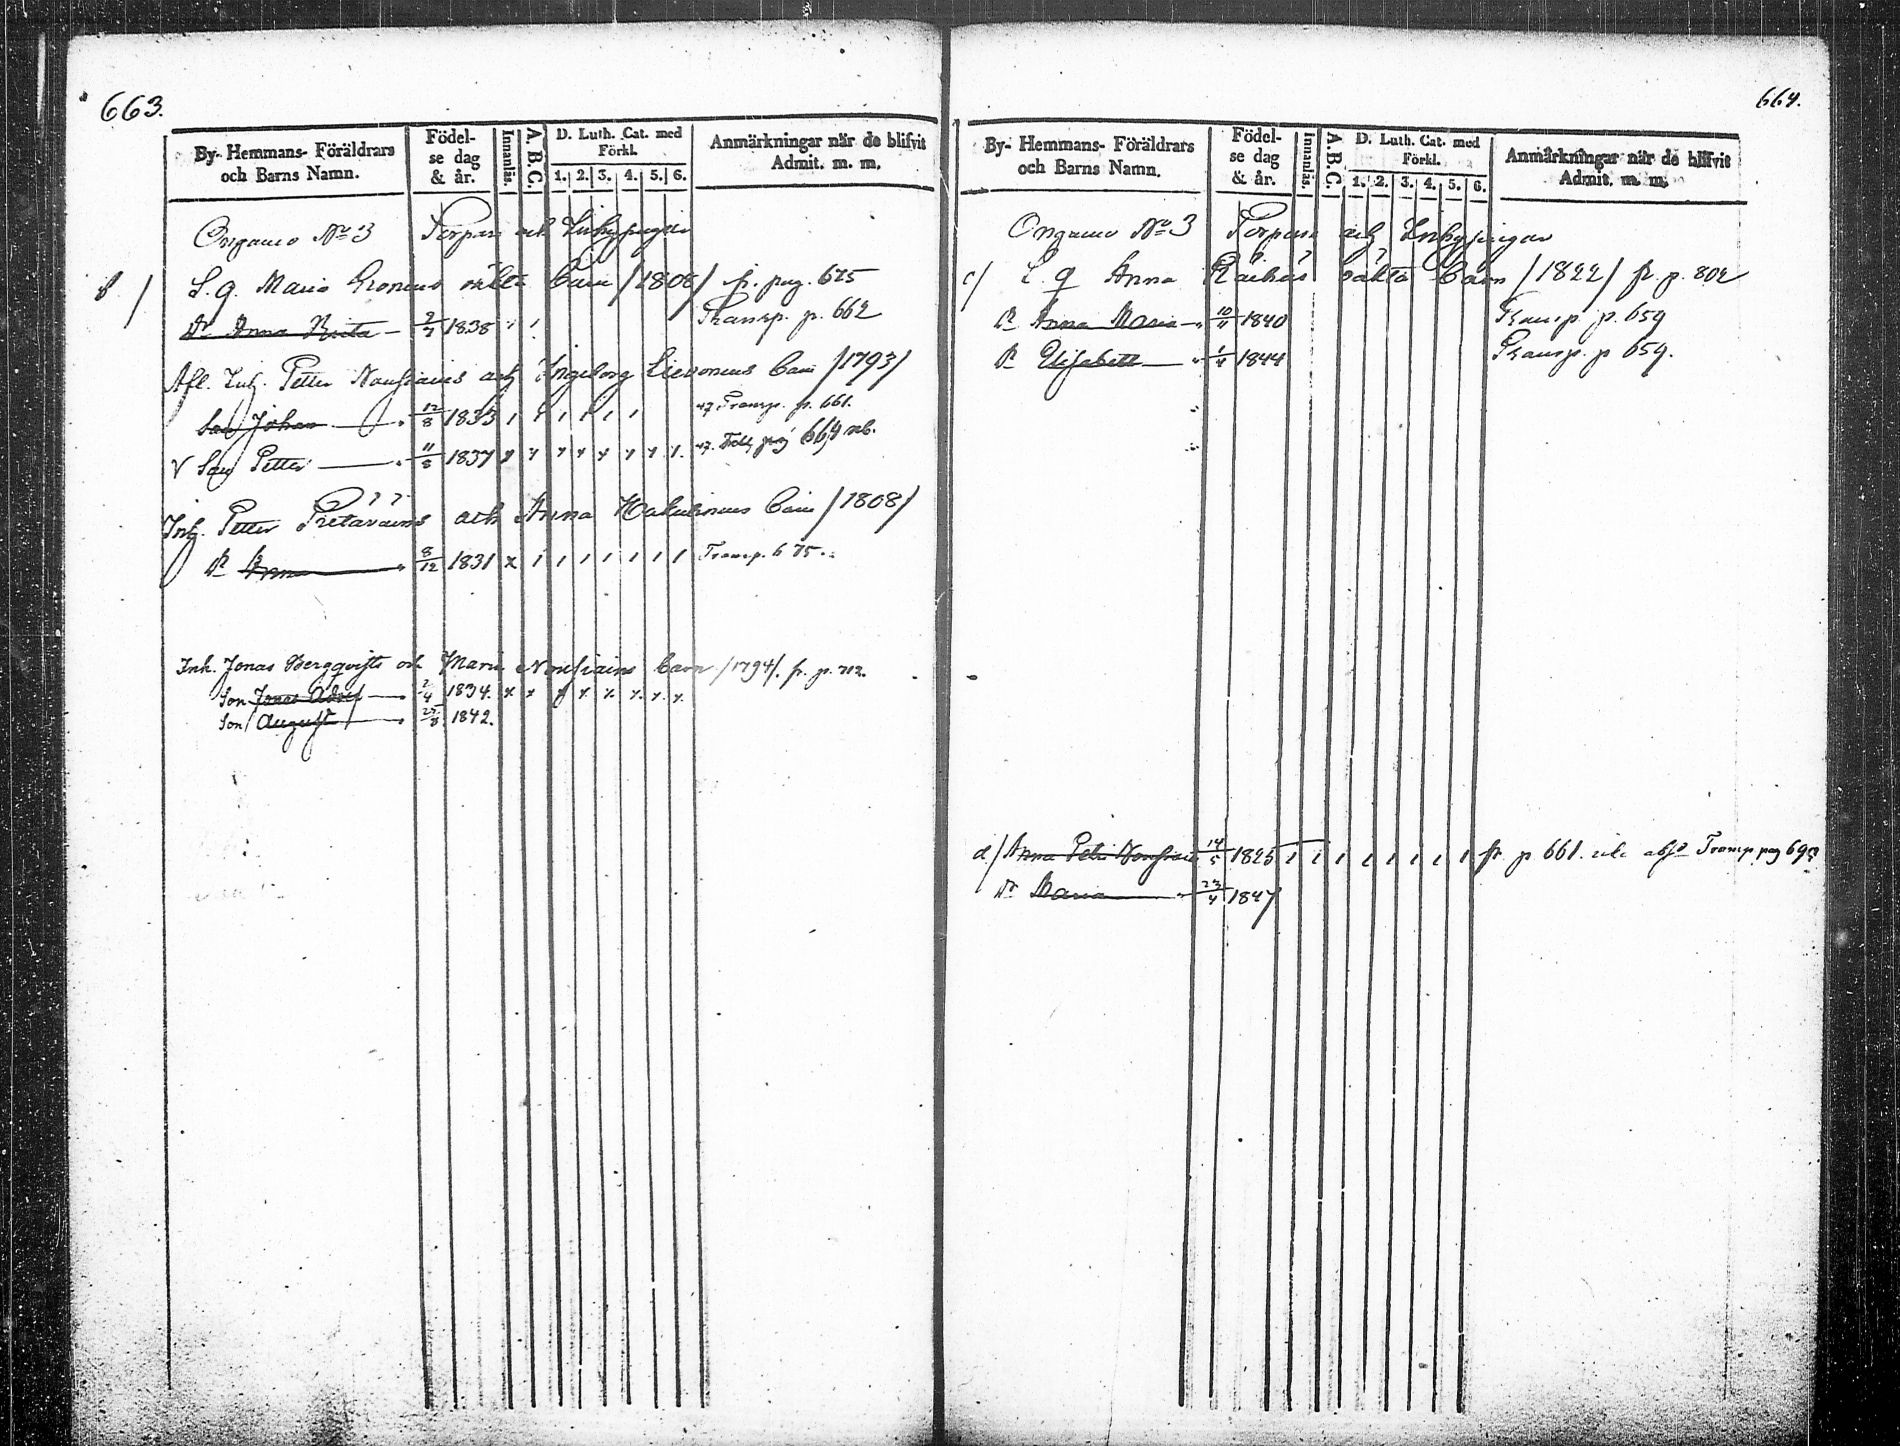 663.
By- Hemmans- Föräldrars och Barns Namn.
Födel-se dag & år.
Innanläs.
A. B. C.
D. Luth. Cat. med Förkl.
1. 2. 3. 4. 5. 6.
Anmärkningar när de blifvit Admit. m. m.
Ongamo No 3 Torpare och Inhysingar
b/ L. q. Maria oäkta Barn /1808/ fr. pag. 675
Dr Anna Brita 2/7 1838 Transp. p. 662
Afl. Inh. Petter Nousiains och Ingeborg Barn /1793/
Son Johan 12/8 1833 Transp. p. 661.
V Son Petter 1837 pag 664
Inh. Petter och Anna Barn /1808/
Dr Anna 8/12 1831 Transp. 675.
Inh. Jonas Bergqvists och Maria Nousiains Barn /1794/. fr. p. 712.
Son Jonas Adolf 2/4 1834.
Son August 1842.
664.
By- Hemmans- Föräldrars och Barns Namn.
Födel-se dag & år.
Innanläs.
A. B. C.
D. Luth. Cat. med Förkl.
1. 2. 3. 4. 5. 6.
Anmärkningar när de blifvit Admit. m. m.
Ongamo No 3 Torpare och Inhysingar
c/ L. q Anna oäkta Barn /1822/ fr. p. 802
Dr Anna Maria 10/11 1840 Transp. p. 659
Dr Elisabeth 1/4 1844 Transp. p 659.
d/ Anna Petri Nousiain 14/5 1825 fr. p 661. Transp. pag
Dr Maria 23/4 1847